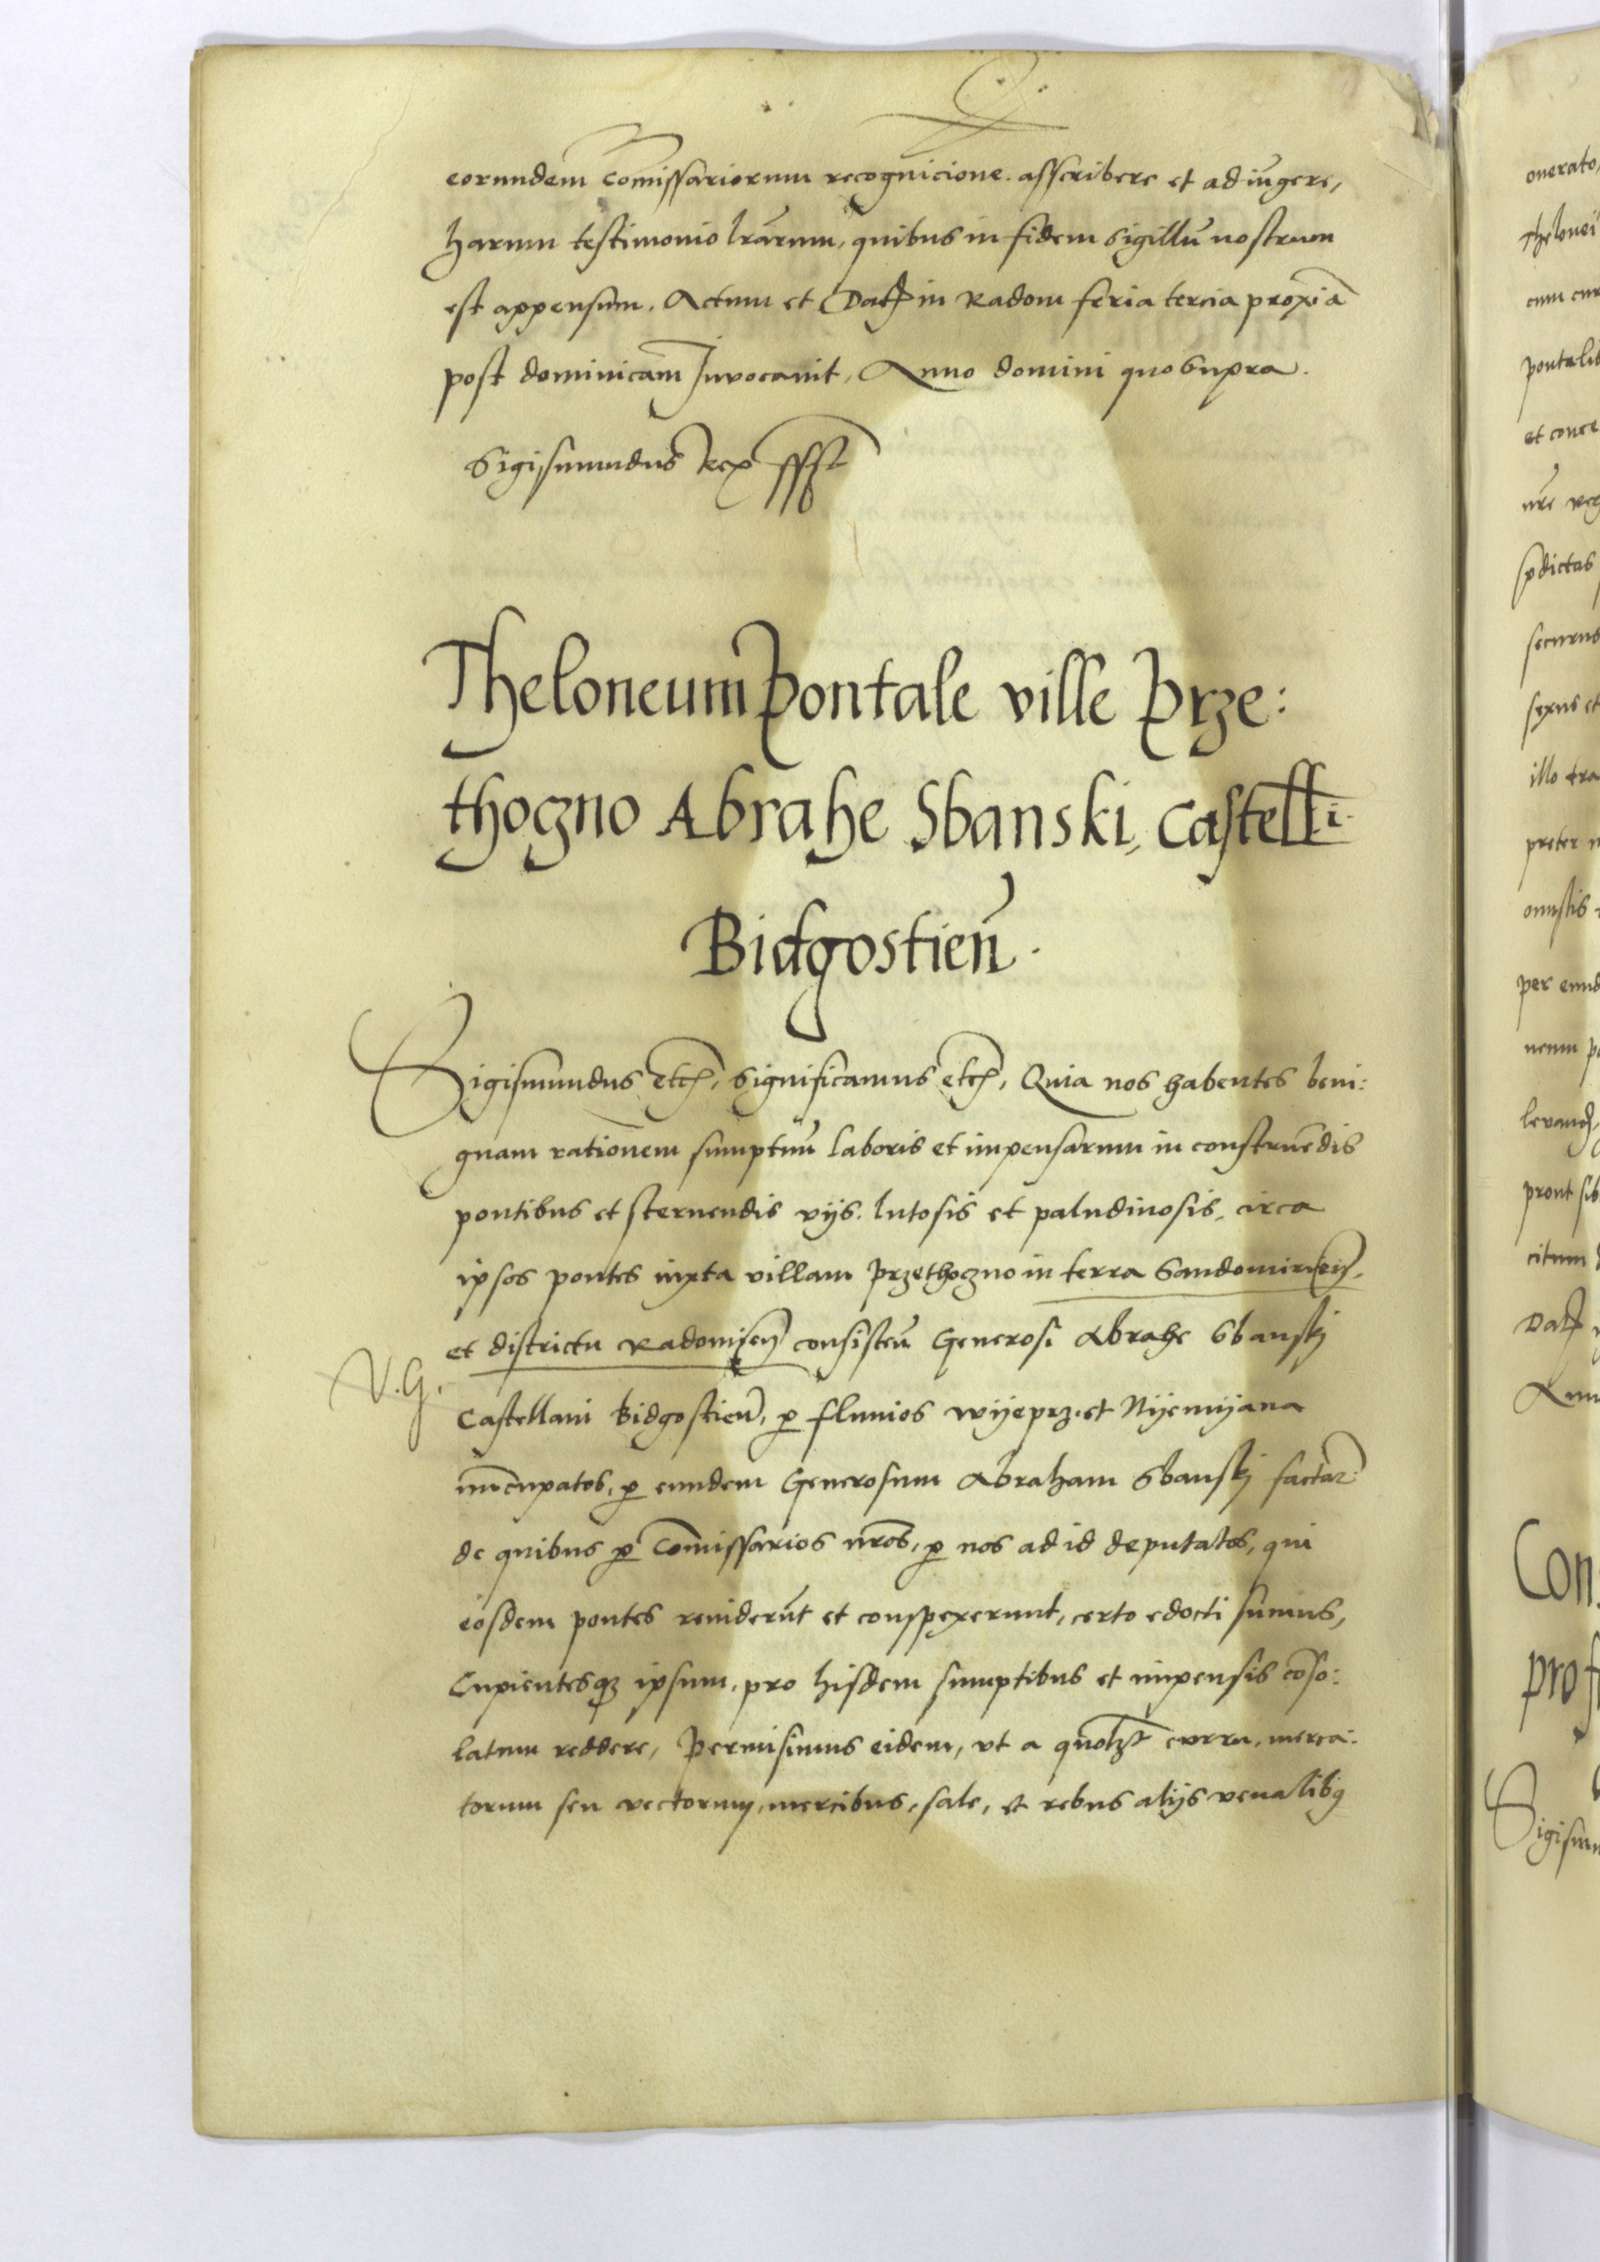 eorundem Comissariorum recognicione. asscribere et adiungere,
harum testimonio lrarum, quibus in fidem Sigillu nostrum
est appensum. Actum et Dat in Radom feria tercia proxia
post dominicam Invocavit, Anno domini quo supra.
Sigismundus Rex sst
Theloneum Pontale ville Prze:
thogzno Abrahe Sbanski, Castelli
Bidgostien.
Sigismundus etc, Significamus etc, Quia nos habentes beni:
gnam rationem sumptuu laboris et impensarum in construedis
pontibus et sternendis vijs. lutosis et paludinosis, circa
ipsos pontes iuxta villam Przethogzno in terra Sandomirien.
et districtu Radomien consisten Generosi Abrahe Sbanskj
V.G.
Castellani Bidgostien, p fluuios wijeprz. et Nijemijana
nucupatos, p eundem Generosum Abraham Sbanskj factar
de quibus p Comissarios nros, p nos ad id deputatos, qui
eosdem pontes reviderut et conspexerunt, certo edocti sumus,
Cupientesq ipsum, pro hisdem sumptibus et impensis coso:
latum reddere, Permisimus eidem, vt a quolzt curru, merca:
torum seu vectorum, mercibus, sale, et rebus alijs venalibq
onerato,
Thelonei
cum cur
pontali
et conce
nre reg
pdictas
securus
sexus et
illo tra
preter
onustis
per eund
levand,
prout sib
citum
Dat
Con
prof
Sigism